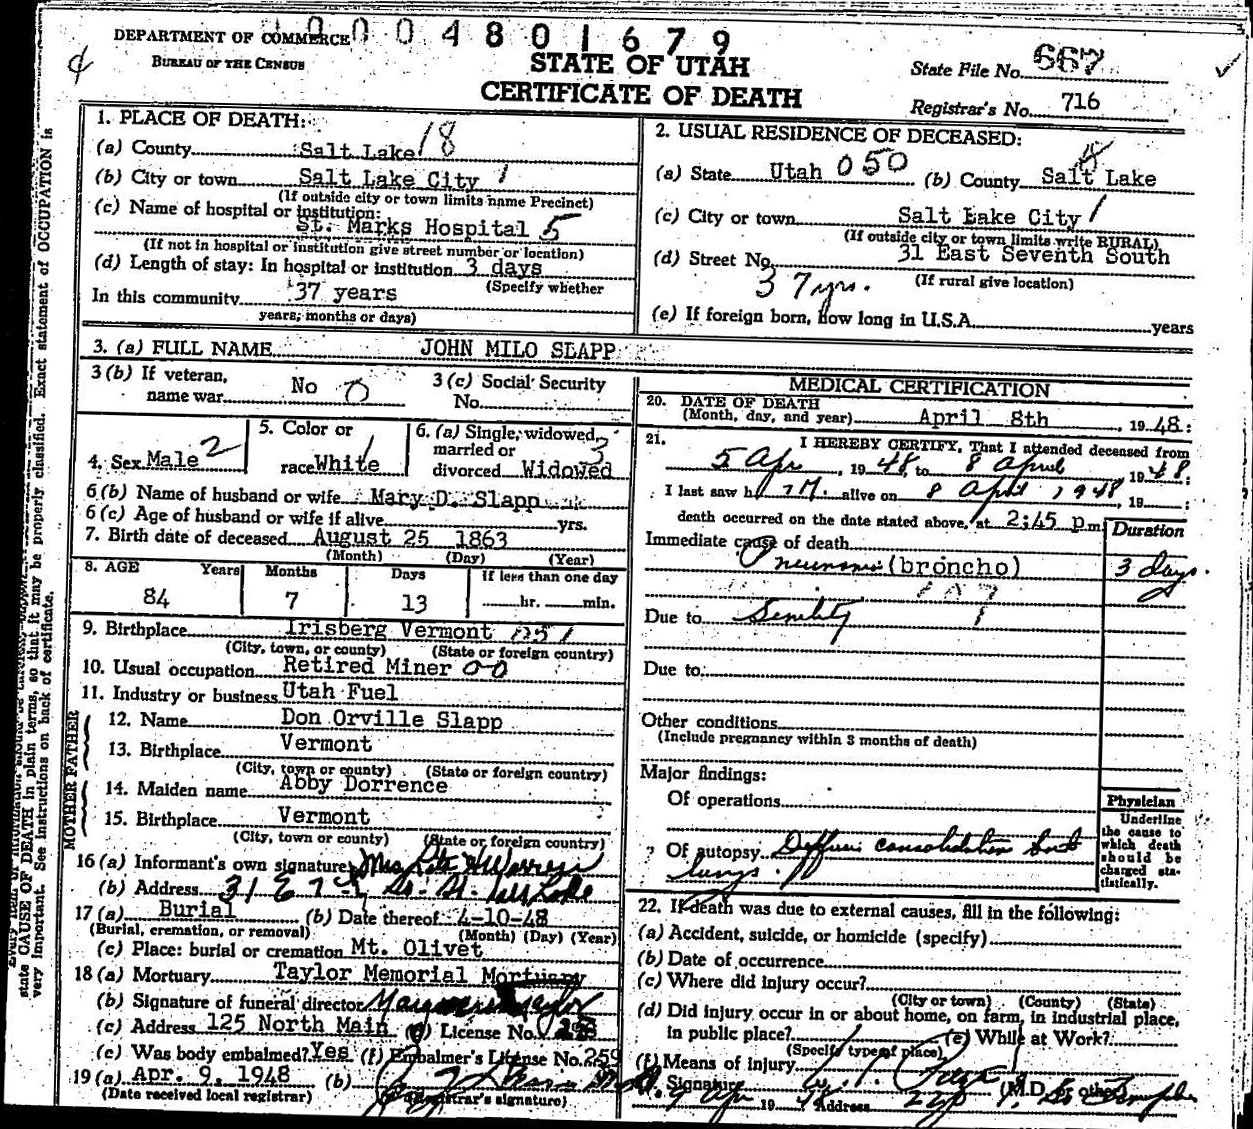 0004801679
DEPARTMENT OF COMMERCE
BUREAU OF THE CENSUS
STATE OF UTAH
CERTIFICATE OF DEATH
State File No. 667
Registrar's No. 716
1. PLACE OF DEATH:
(a) County Salt Lake 18
(b) City or town Salt Lake City 1
(If outside city or town limits name Precinct)
(c) Name of hospital or institution:
St. Marks Hospital 5
(If not in hospital or institution give street number or location)
(d) Length of stay: In hospital or institution 3 days
(Specify whether
In this community 37 years
years, months or days)
2. USUAL RESIDENCE OF DECEASED:
(a) State Utah 050 (b) County Salt Lake
(c) City or town Salt Lake City 1
(If outside city or town limits write RURAL)
(d) Street No. 31 East Seventh South
37 yrs. (If rural give location)
(e) If foreign born, how long in U.S.A. years
3. (a) FULL NAME JOHN MILO SLAPP
3 (b) If veteran, name war No 0
3 (c) Social Security No.
4. Sex Male 2
5. Color or race White 1
6. (a) Single, widowed, married or divorced Widowed 3
6 (b) Name of husband or wife Mary D. Slapp
6 (c) Age of husband or wife if alive yrs.
7. Birth date of deceased August 25 1863
(Month) (Day) (Year)
8. AGE Years Months Days If less than one day
84 7 13 hr. min.
9. Birthplace Irisberg Vermont 051
(City, town, or county) (State or foreign country)
10. Usual occupation Retired Miner 0-0
11. Industry or business Utah Fuel
FATHER
12. Name Don Orville Slapp
13. Birthplace Vermont
(City, town or county) (State or foreign country)
MOTHER
14. Maiden name Abby Dorrence
15. Birthplace Vermont
(City, town or county) (State or foreign country)
16 (a) Informant's own signature Mrs
(b) Address 31 E 7th So. St. Salt Lake
17 (a) Burial (b) Date thereof 4-10-48
(Burial, cremation, or removal) (Month) (Day) (Year)
(c) Place: burial or cremation Mt. Olivet
18 (a) Mortuary Taylor Memorial Mortuary
(b) Signature of funeral director Taylor
(c) Address 125 North Main License No.
(e) Was body embalmed? Yes (f) Embalmer's License No. 259
19 (a) Apr. 9, 1948 (b)
(Date received local registrar) (Registrar's signature)
MEDICAL CERTIFICATION
20. DATE OF DEATH
(Month, day, and year) April 8th, 1948:
21. I HEREBY CERTIFY, That I attended deceased from
5 Apr, 1948, to 8 April 1948:
I last saw h im alive on 8 April 1948, 19 :
death occurred on the date stated above, at 2:45 p.m.
Duration
Immediate cause of death
Pneumonia (broncho) 3 days.
107
Due to Senility
Due to:
Other conditions
(Include pregnancy within 3 months of death)
Major findings:
Of operations
Of autopsy Diffuse consolidation both
lungs.
Physician
Underline
the cause to
which death
should be
charged sta-
tistically.
22. If death was due to external causes, fill in the following:
(a) Accident, suicide, or homicide (specify)
(b) Date of occurrence
(c) Where did injury occur?
(City or town) (County) (State)
(d) Did injury occur in or about home, on farm, in industrial place,
in public place? (e) While at Work?
(Specify type of place)
(f) Means of injury
Signature (M.D. or other)
9 Apr 1948 Address
state CAUSE OF DEATH in plain terms, so that it may be properly classified. Exact statement of OCCUPATION is
very important. See instructions on back of certificate.